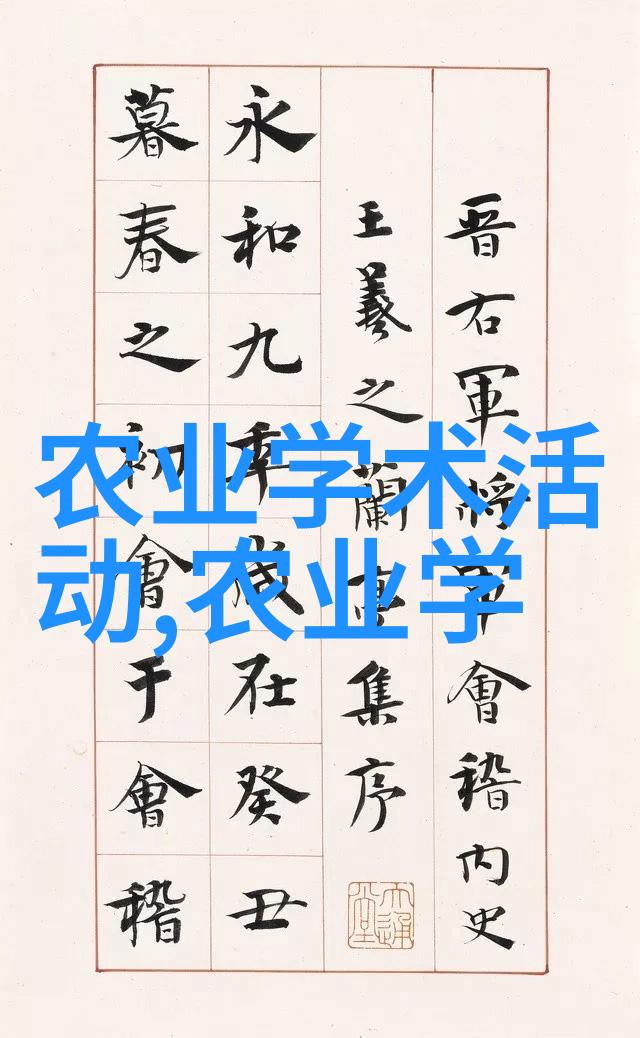 晋右軍將軍會稽内史
王羲之蘭亭集序
永和九年歲在癸丑
暮春之初會于會稽
农业学术活
动,农业学